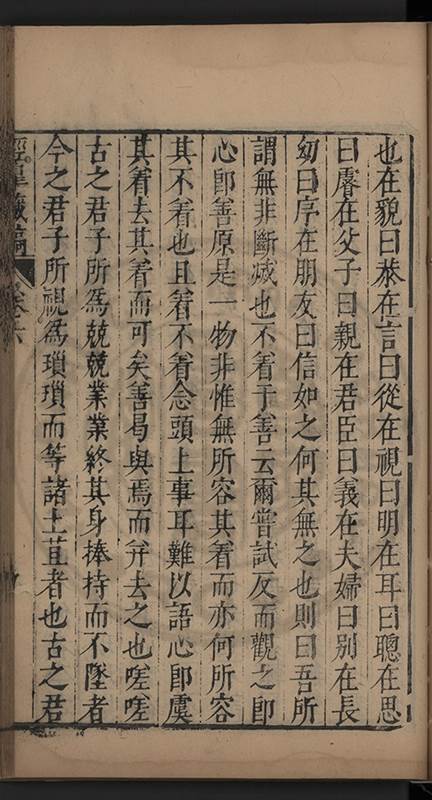 也在貌曰恭在言曰從在視曰明在耳曰聰在思
曰睿在父子曰親在君臣曰義在夫婦曰別在長
幼曰序在朋友曰信如之何其無之也則曰吾所
謂無非斷滅也不着于善云爾嘗試反而觀之即
心即善原是一物非惟無所容其着而亦何所容
其不着也且着不着念頭上事耳難以語心即虞
其着去其着而可矣善曷與焉而并去之也嗟嗟
古之君子所爲兢兢業業終其身捧持而不墜者
今之君子所視爲瑣瑣而等諸土苴者也古之君
涇臯藏稿
卷六